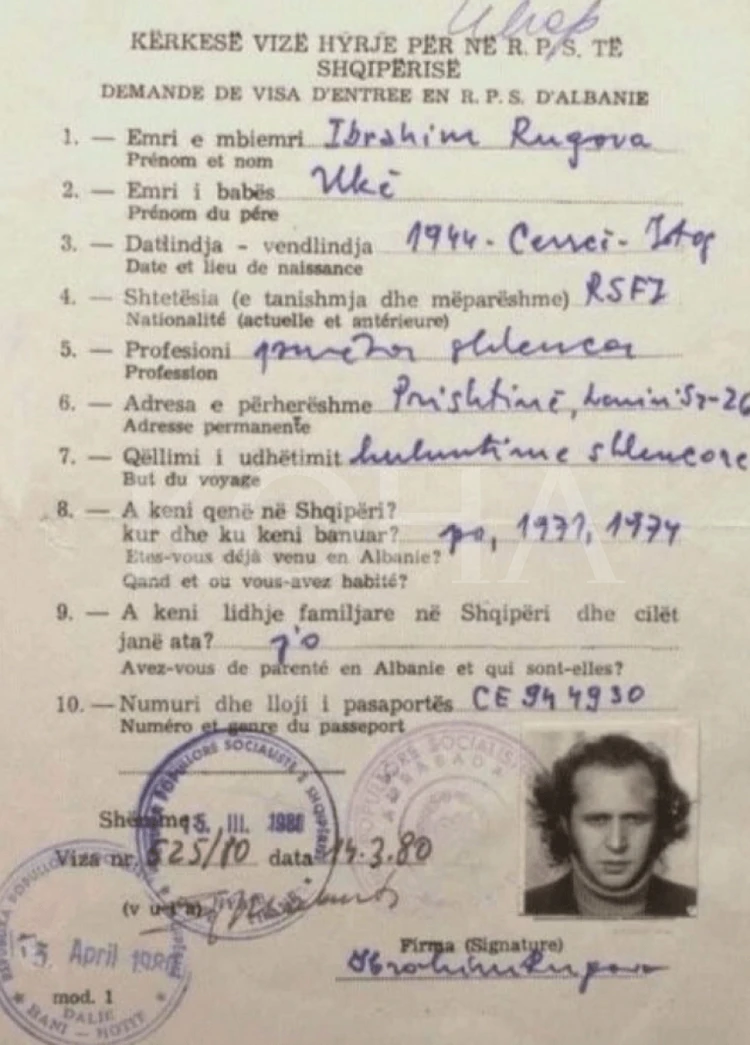 KËRKESË VIZË HYRJE PËR NË R. P. S. TË
SHQIPËRISË
DEMANDE DE VISA D'ENTREE EN R. P. S. D'ALBANIE
1. — Emri e mbiemri Ibrahim Rugova
Prénom et nom
2. — Emri i babës Ukë
Prénom du pére
3. — Datlindja - vendlindja 1944 - Cerrcë - Istog
Date et lieu de naissance
4. — Shtetësia (e tanishmja dhe mëparëshme) RSFJ
Nationalité (actuelle et antérieure)
5. — Profesioni punëtor shkencor
Profession
6. — Adresa e përherëshme Prishtinë, Lenin 57-26
Adresse permanente
7. — Qëllimi i udhëtimit hulumtime shkencore
But du voyage
8. — A keni qenë në Shqipëri?
kur dhe ku keni banuar? po, 1974
Etes-vous déjà venu en Albanie?
Qand et ou vous-avez habité?
9. — A keni lidhje familjare në Shqipëri dhe cilët
janë ata? jo
Avez-vous de parenté en Albanie et qui sont-elles?
10. — Numuri dhe lloji i pasaportës CE 944930
Numéro et genre du passeport
POPULLORE SOCIALISTE E SHQIPËRISË
POPULLORE SOCIALISTE
AMBASADA
Shënime 15. III. 1980
Viza nr. 525/80 data 14.3.80
(vula)
Firma (Signature)
Ibrahim Rugova
April 1980
mod. 1
DALJE
HANI - HOTIT
KOHA